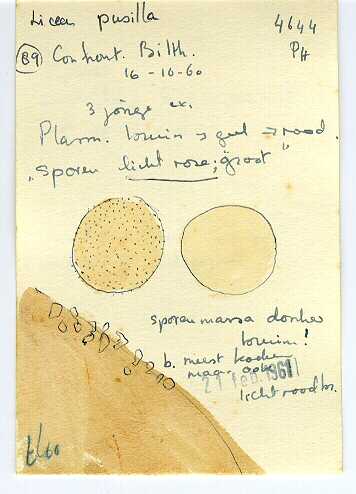 Licea pusilla
4644
PH
B9 Confront. Bilth.
16-10-60
3 jonge ex.
Plasm. bruin → geel → rood.
"Sporen licht rose; groot"
sporenmassa donker
bruin!
b. meest
maar ook
21 Feb. 1961
licht roodbr.